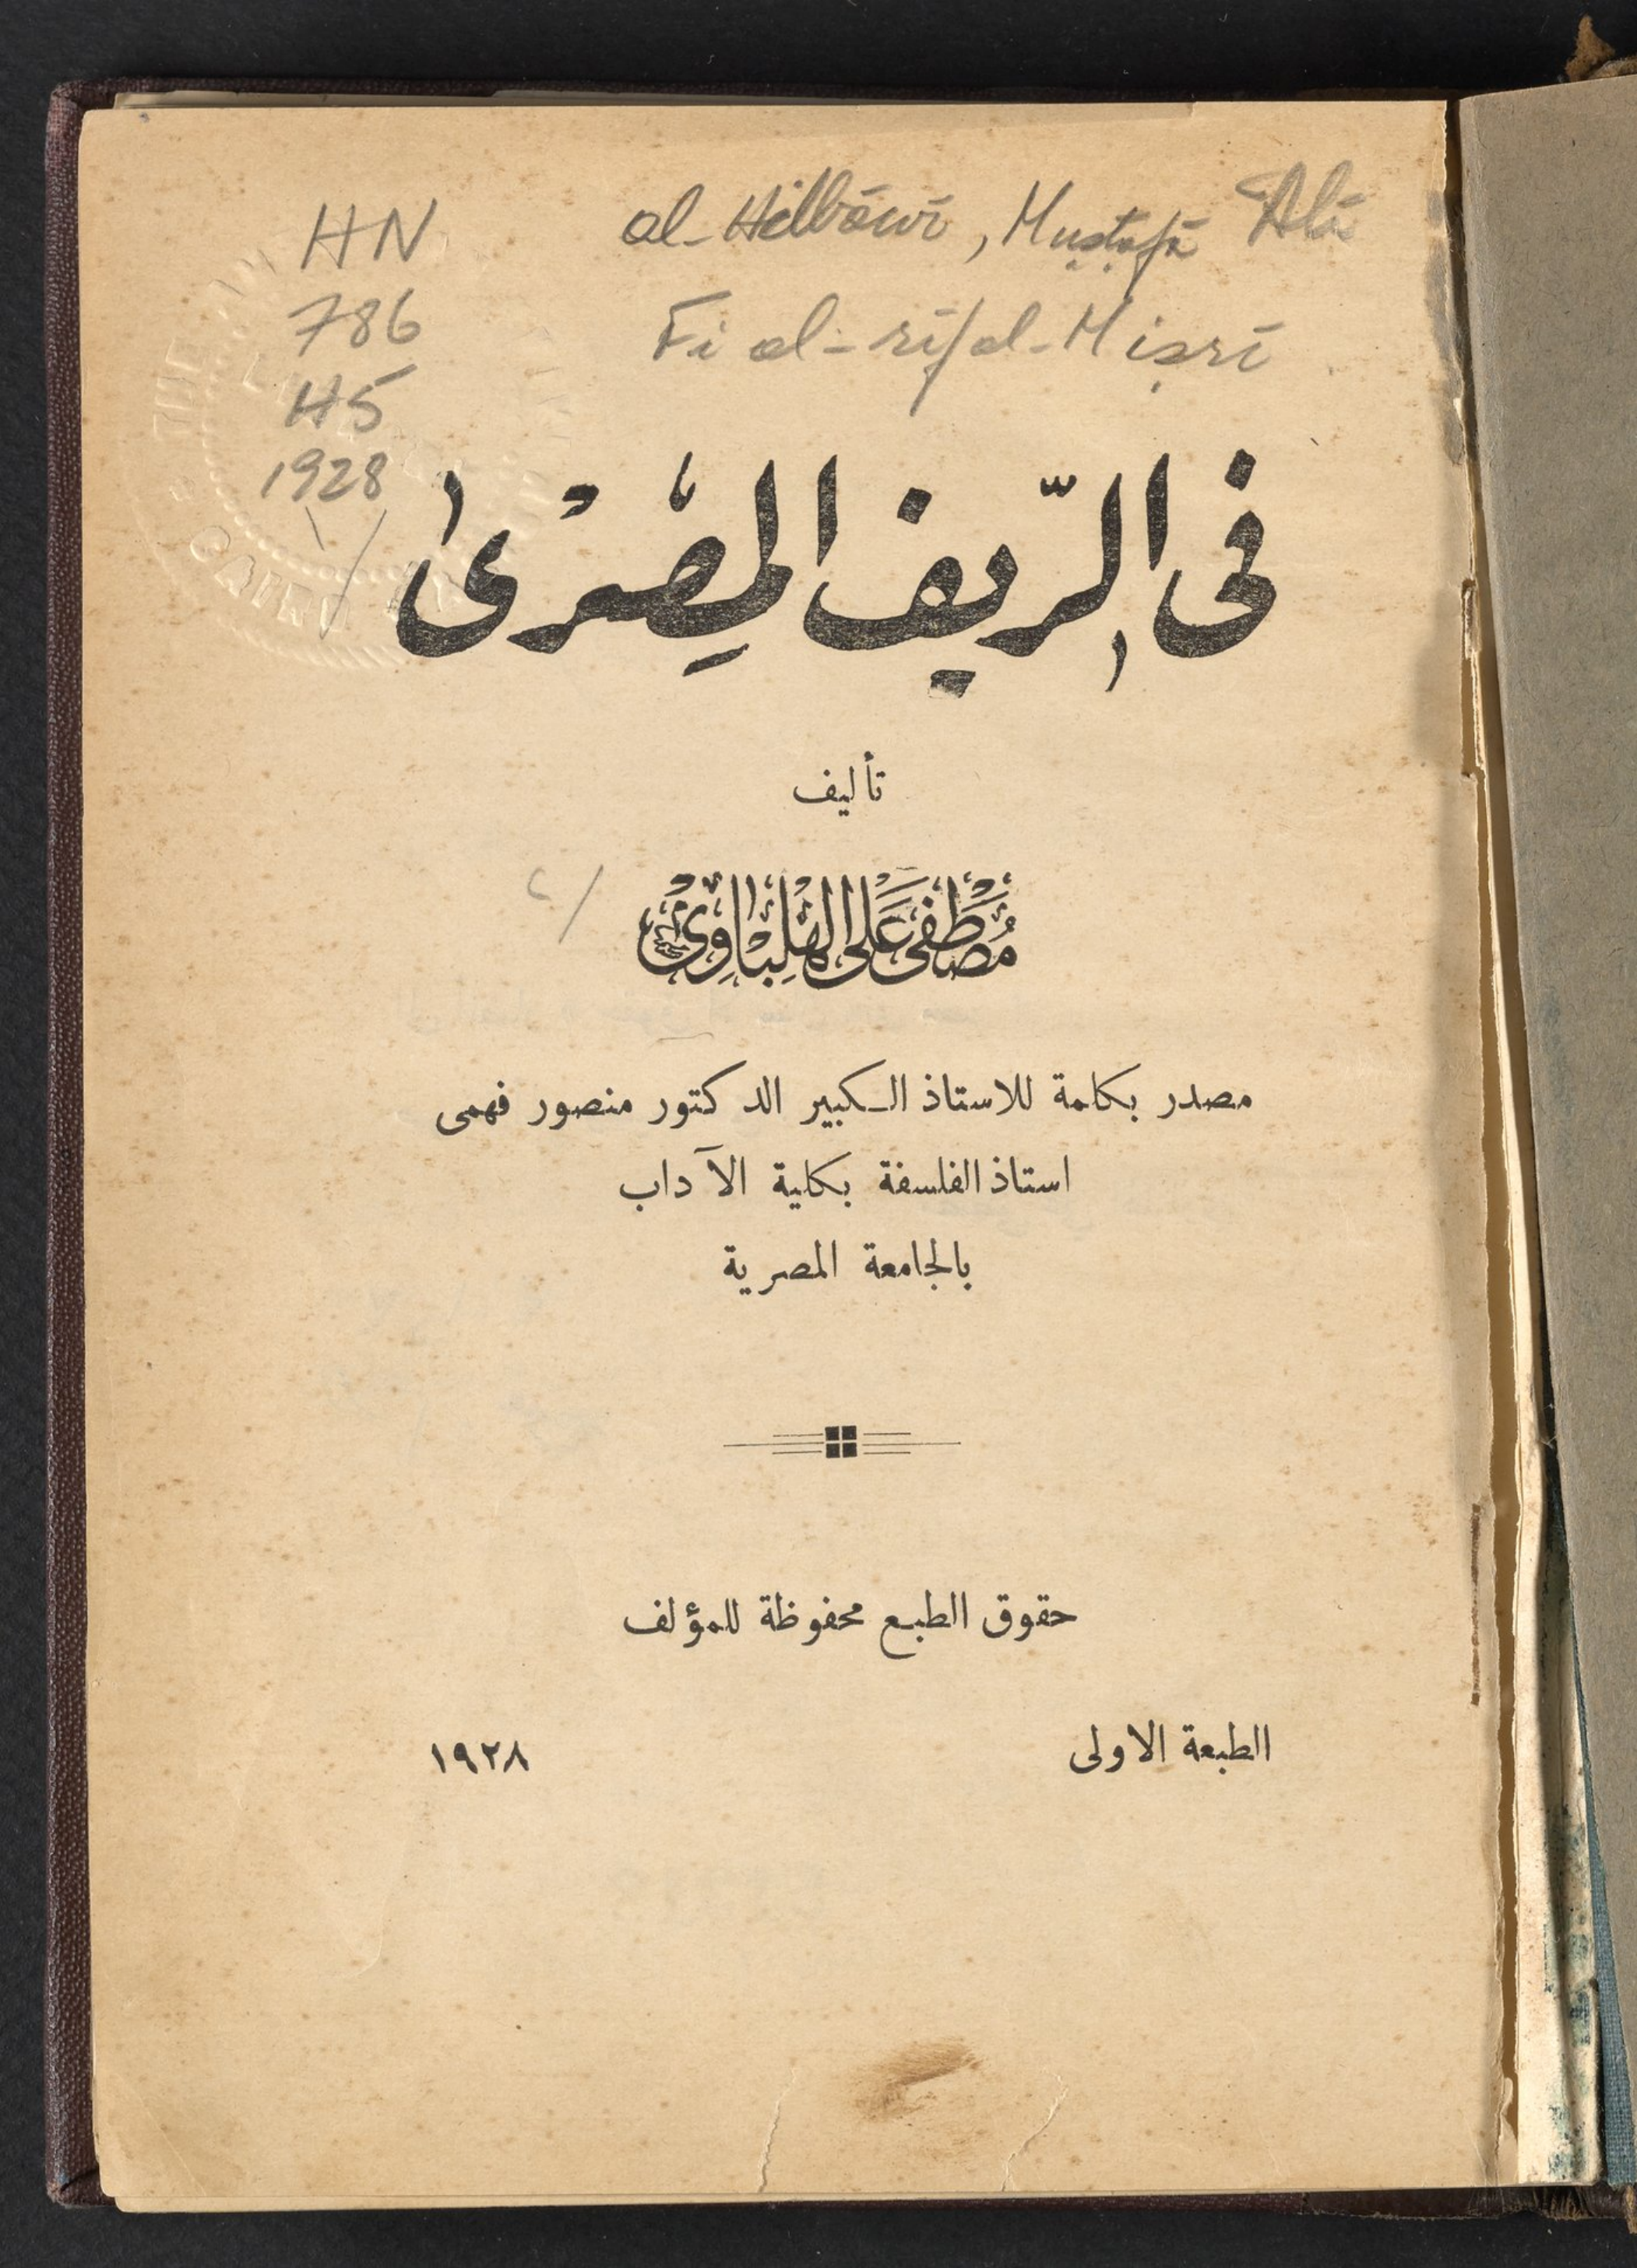 HN al-Hilbāwī, Muṣṭafá ʻAlī
786 Fi al-rīf al-Miṣrī
H5
1928
فى الرّيف المِصْرى
تأليف
مُصْطَفى عَلى الهِلْبَاوِىْ
مصدر بكلمة للاستاذ الكبير الدكتور منصور فهمى
استاذ الفلسفة بكلية الآداب
بالجامعة المصرية
حقوق الطبع محفوظة للمؤلف
الطبعة الاولى ١٩٢٨